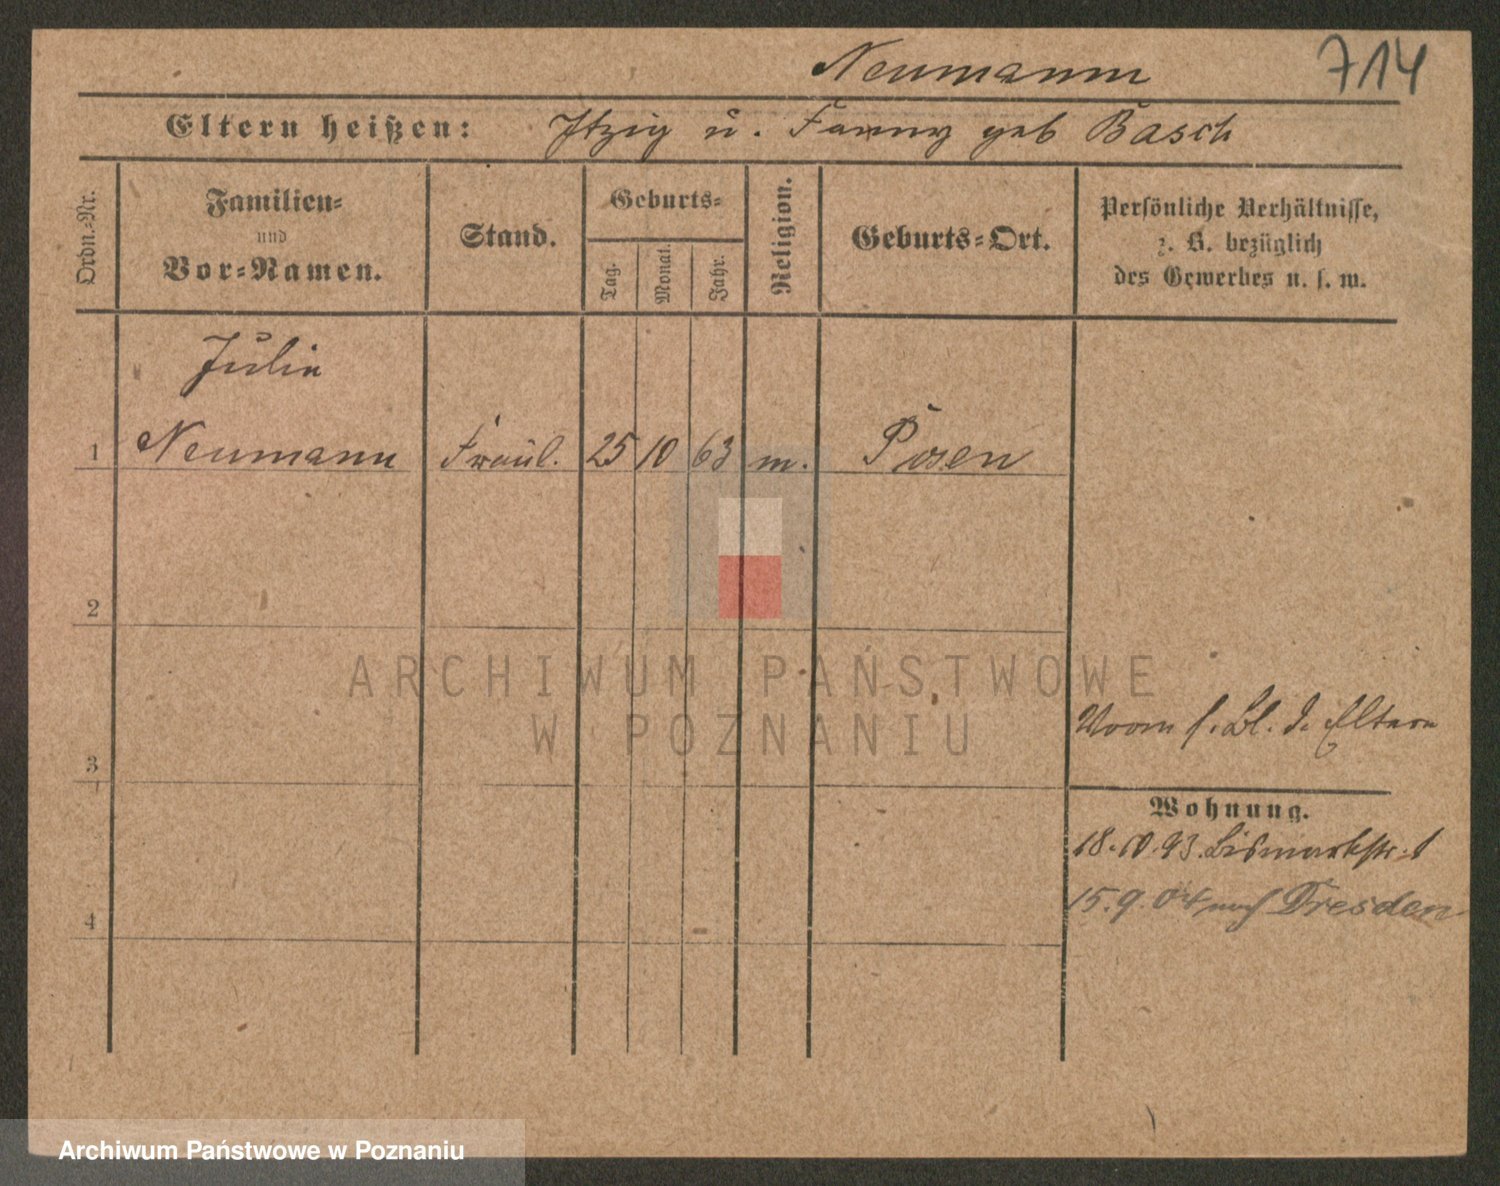 Neumann
714
Eltern heißen: Itzig u. Fanny geb Basch
Ordn.-Nr.
Familien-
und
Vor-Namen.
Stand.
Geburts-
Tag.
Monat.
Jahr.
Religion.
Geburts-Ort.
Persönliche Verhältnisse,
z. B. bezüglich
des Gewerbes u. s. w.
Julie
1 Neumann Fräul. 25 10 63 m. Posen
2
3
s. Bl. d. Eltern
Wohnung.
18.10.93. Bismarkstr. 1
15.9.04 nach Dresden
4
ARCHIWUM PAŃSTWOWE
W POZNANIU
Archiwum Państwowe w Poznaniu